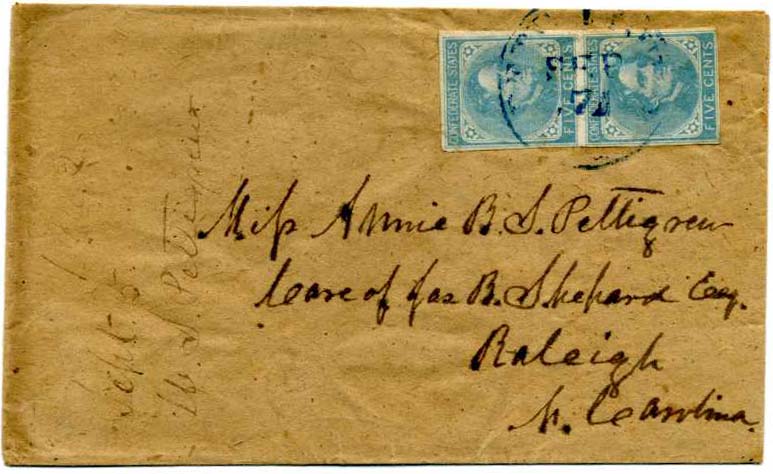 CONFEDERATE STATES
FIVE CENTS
CONFEDERATE STATES
FIVE CENTS
SEP
Miss Annie B. S. Pettigrew
Care of Jas B. Shepard Esq.
Raleigh
N. Carolina.
Sept. 5.
W. S. Pettigrew